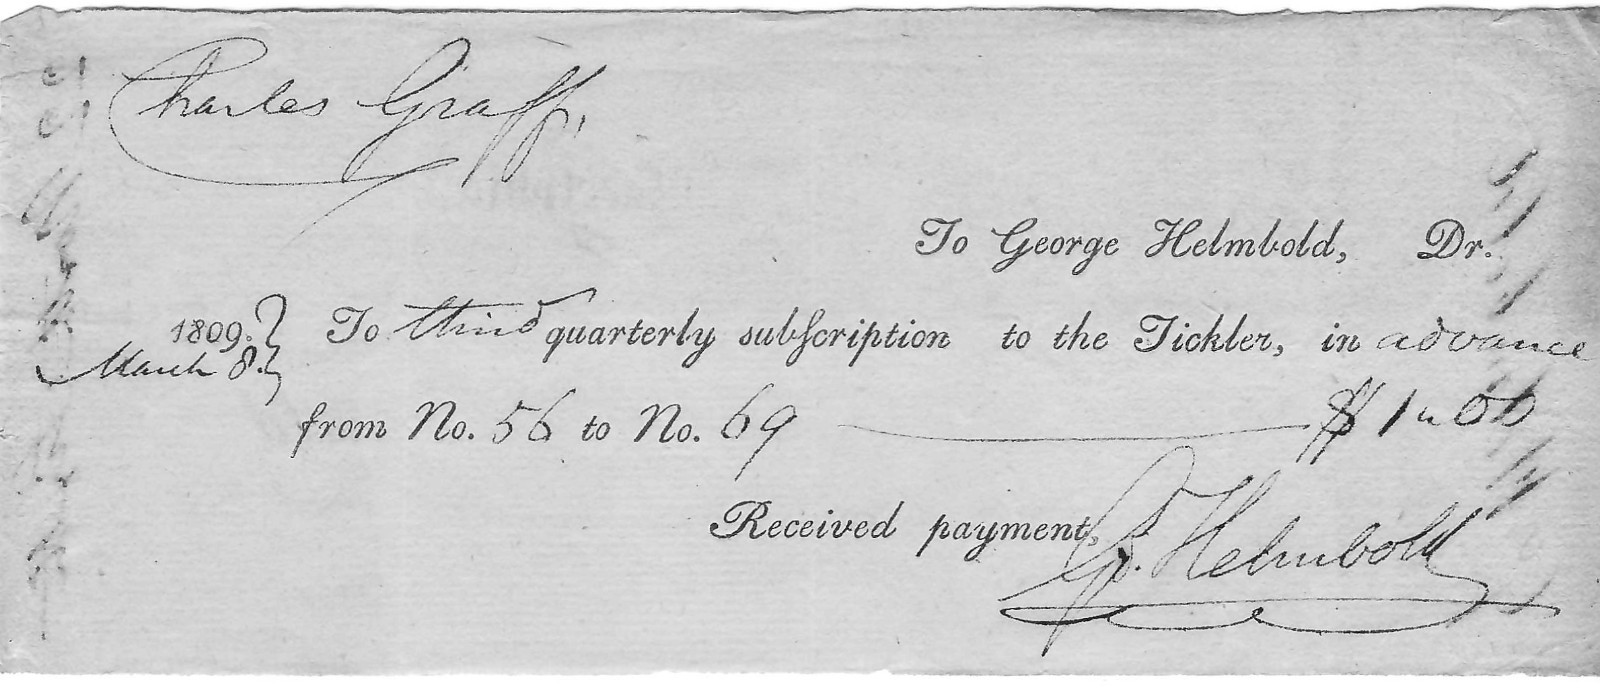 Charles Graff,
To George Helmbold, Dr.
1809. To third quarterly subſcription to the Tickler, in advance
March 8.
from No. 56 to No. 69 $ 1 " 00
Received payment,
G. Helmbold